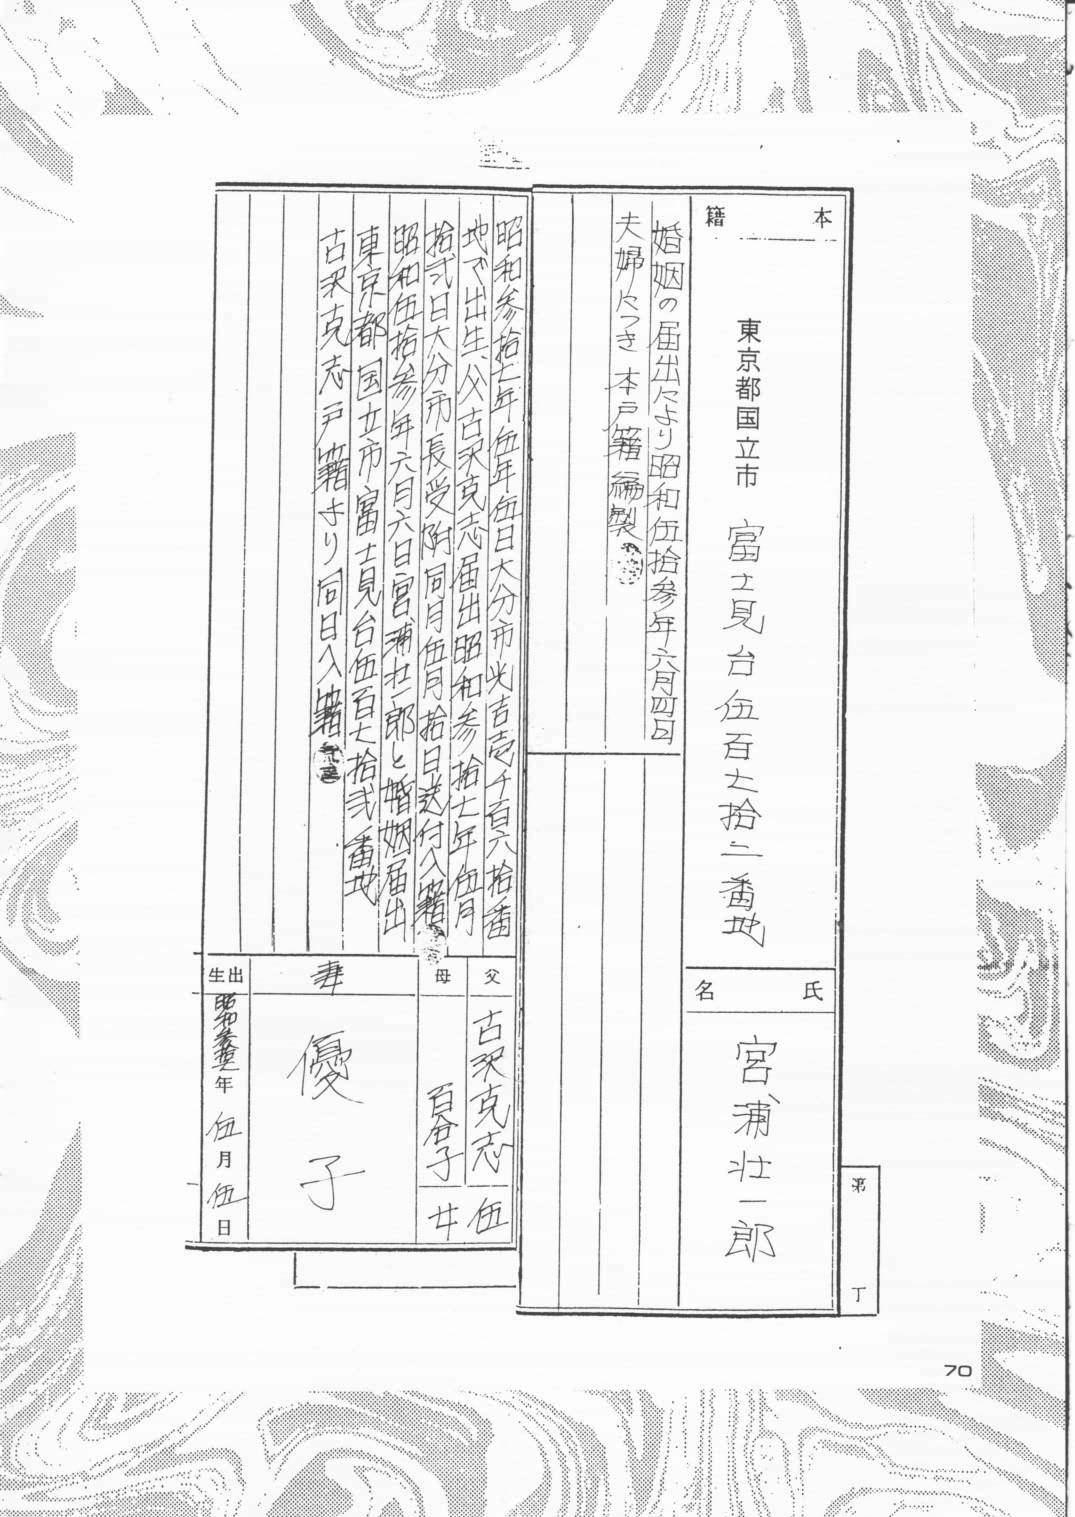 本籍
東京都国立市 富士見台伍百七拾二番地
婚姻の届出により昭和伍拾参年六月四日
夫婦につき本戸籍編製
氏名
宮浦壮一郎
第 丁
昭和参拾七年伍年伍日大分市光吉壱千百六拾番
地で出生、父古沢克志届出昭和参拾七年伍月
拾弐日大分市長受附同月伍月拾日送付入籍
昭和伍拾参年六月六日宮浦壮一郎と婚姻届出
東京都国立市富士見台伍百七拾弐番地
古沢克志戸籍より同日入籍
父
古沢克志
母
百合子
伍
女
妻
優子
出生
昭和参拾七年
伍月
伍日
70